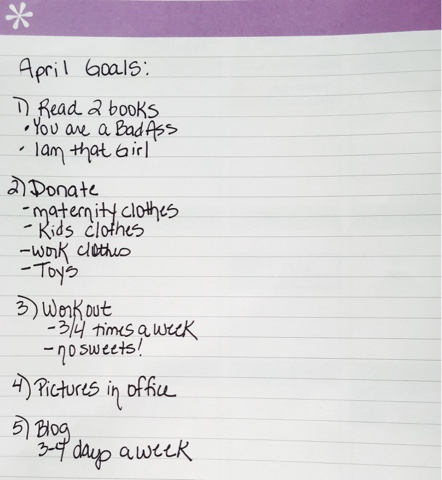 April Goals:
1) Read 2 books
• You are a BadAss
• I am that Girl
2) Donate
- maternity clothes
- Kids clothes
- work clothes
- Toys
3) Workout
- 3/4 times a week
- no sweets!
4) Pictures in office
5) Blog
3-4 days a week